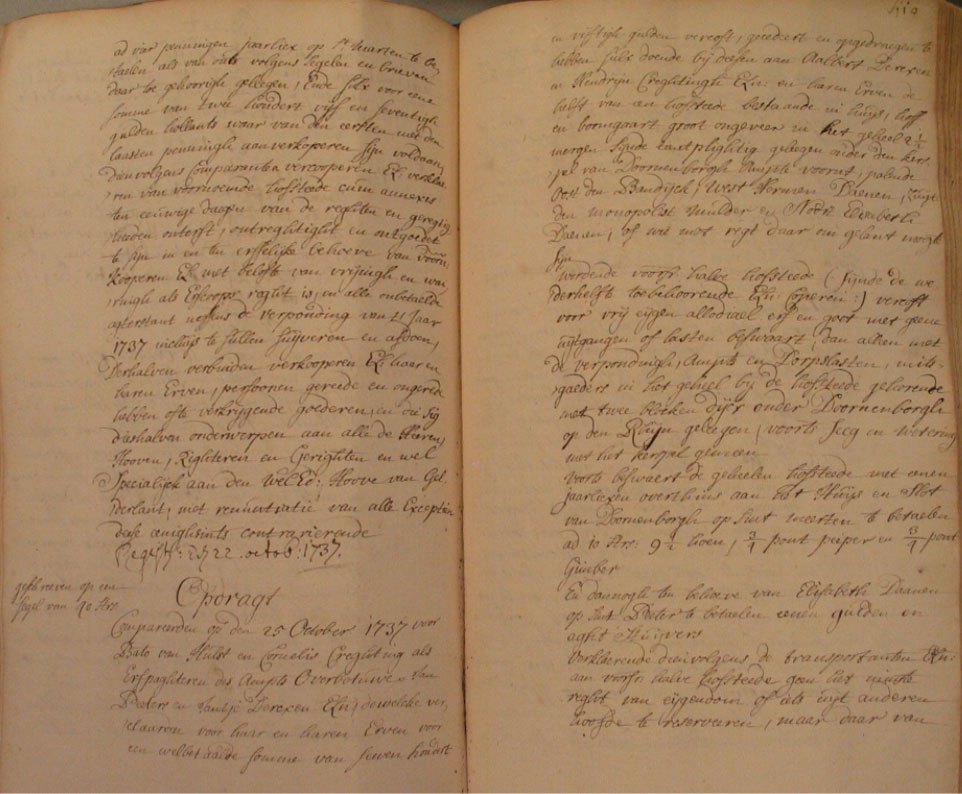 ad vier penningen jaarlix op St. Marten te be,
taelen als van outs volgens segelen en brieven
daar te gehoorigh gelegen, Ende sulx voor eene
somme van twe hondert vijf en seventigh
gulden hollants waar van den eersten met den
laasten penningh aen verkoperen sijn voldaan
dienvolgens Comparanten vercooperen El: verklae
ren van voornoemde hofsteede cum annexis
ten eeuwige daagen van de regten en geregtig
heeden onterft, ontreghtight en ontgoedet
te sijn in en ten erffelijke behoeve van voorn
Kooperen El: met belofte van vrijingh en waa
ringh als Erfcoops reght is, en alle onbetaelde
agterstant neffens de verponding van 't Jaar
1737 incluijs te sullen suijveren en afdoen,
Derhalven verbinden verkooperen El: haer en
haren Erven, persoonen gereede en ongereede
hebben ofte verkrijgende goederen, en die sig
dieshalven onderwerpen aan alle de Heeren,
Hooven, Righteren en Gerighten en wel
Specialijck aan den WelEd: Hoove van Gel,
derlant, met renuntiatie van alle Exceptien
dese eenighsints contrarieerende
Regist: 22 octob: 1737.
geschreven op een
segel van
Opdragt
Compareerden op den 25 October 1737 voor
Bato van Hulst en Cornelis Creghting als
Erfpaghteren des Ampts Overbetuwe
Derxen El:, deweleke ver,
claaren voor haar en haeren Erven voor
een welbetaalde somme van sewen hondert
en vijftigh gulden vercoft, gecedeert en opgedraegen te
hebben sulx doende bij deesen aan Aalbert Derxen
en Hendrijn Creghtingh El: en haren Erven de
helft van een hofsteede bestaande in huijs, hoff
en boomgaart groot ongeveer in het geheel 2 1/2
morgen sijnde gelegen onder den kers,
pel van Doornenborgh Ampte voornt, palende
Oost den Bandijck, West Hermen Daenen, Zuijt
den monopolist Mulder en Noort Elisabeth
Daenen, of wie met regt daar aen gelant moght
sijn
Werdende voors: halve hofsteede (sijnde de we
derhelft toebehoorende El: Coperen:) vercoft
voor vrij eijgen allodiael erf en goet met geene
uijtgangen of lasten beswaart, dan alleen met
de verpondingh, Ampts en Dorpslasten, mits-
gaeders in het geheel bij de hofsteede gehorende
met twee blocken dijx onder Doornenborgh
op den Rhijn gelegen, voorts Seeg en Wetering
met het kerspel gemeen
Voorts beswaert de geheelen hofsteede met eenen
jaarlixen overthins aan het Huijs en Slot
van Doornenborgh op Sint Meerten te betaelen
ad 10 strs: 9 1/2 hoen, pont peiper en pont
Gimber
En dannogh ten behoeve van Elisabeth Daanen
op Sint Pieter te betaelen eenen gulden en
aght stuijvers
Verklaerende dienvolgens de transportanten El:
aan voors: halve hofsteede geen het minste
reght van eijgendom of als uijt anderen
hoofde te reserveeren, maar daar van